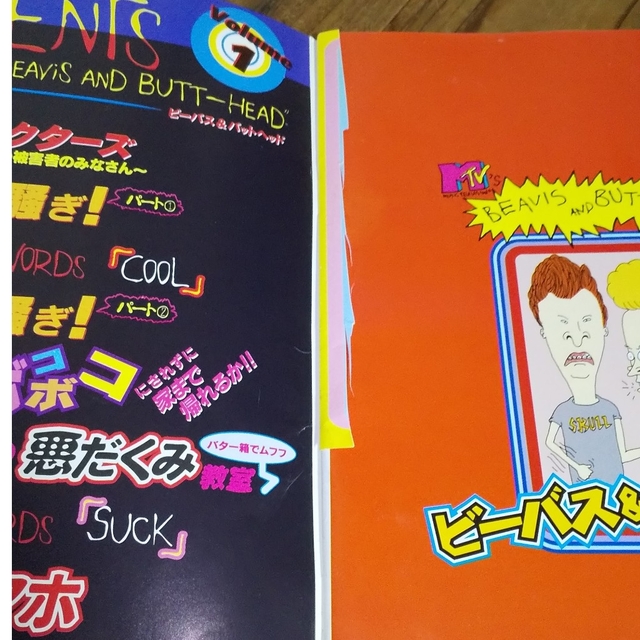 ENTS
Volume
1
EAVIS AND BUTT-HEAD"
ビーバス&バットヘッド
クターズ
被害者のみなさん~
騒ぎ! パート①
WORDS 「COOL」
騒ぎ! パート②
ボコ
ボコ
にされずに
家まで
帰れるか!!
悪だくみ
バター箱でムフフ
教室
RDS 「SUCK」
ホ
MTV'S
MUSIC TELEVISION
BEAVIS AND BUT
SKULL
ビーバス&